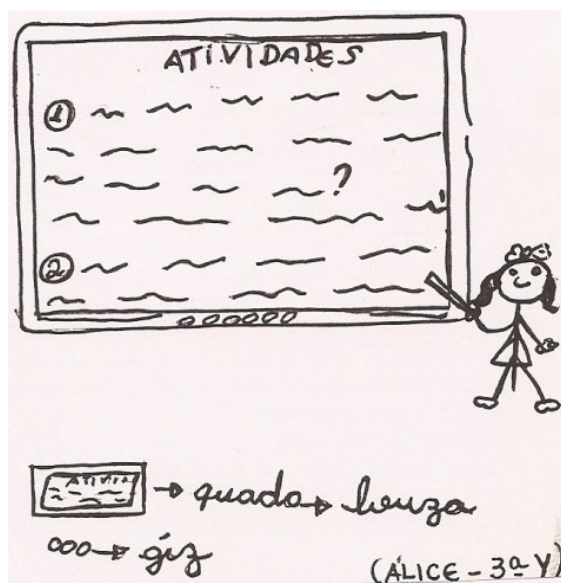 ATIVIDADES
1
?
2
ATIVIDA → quado → louza
ooo → giz
(ALICE - 3ª Y)